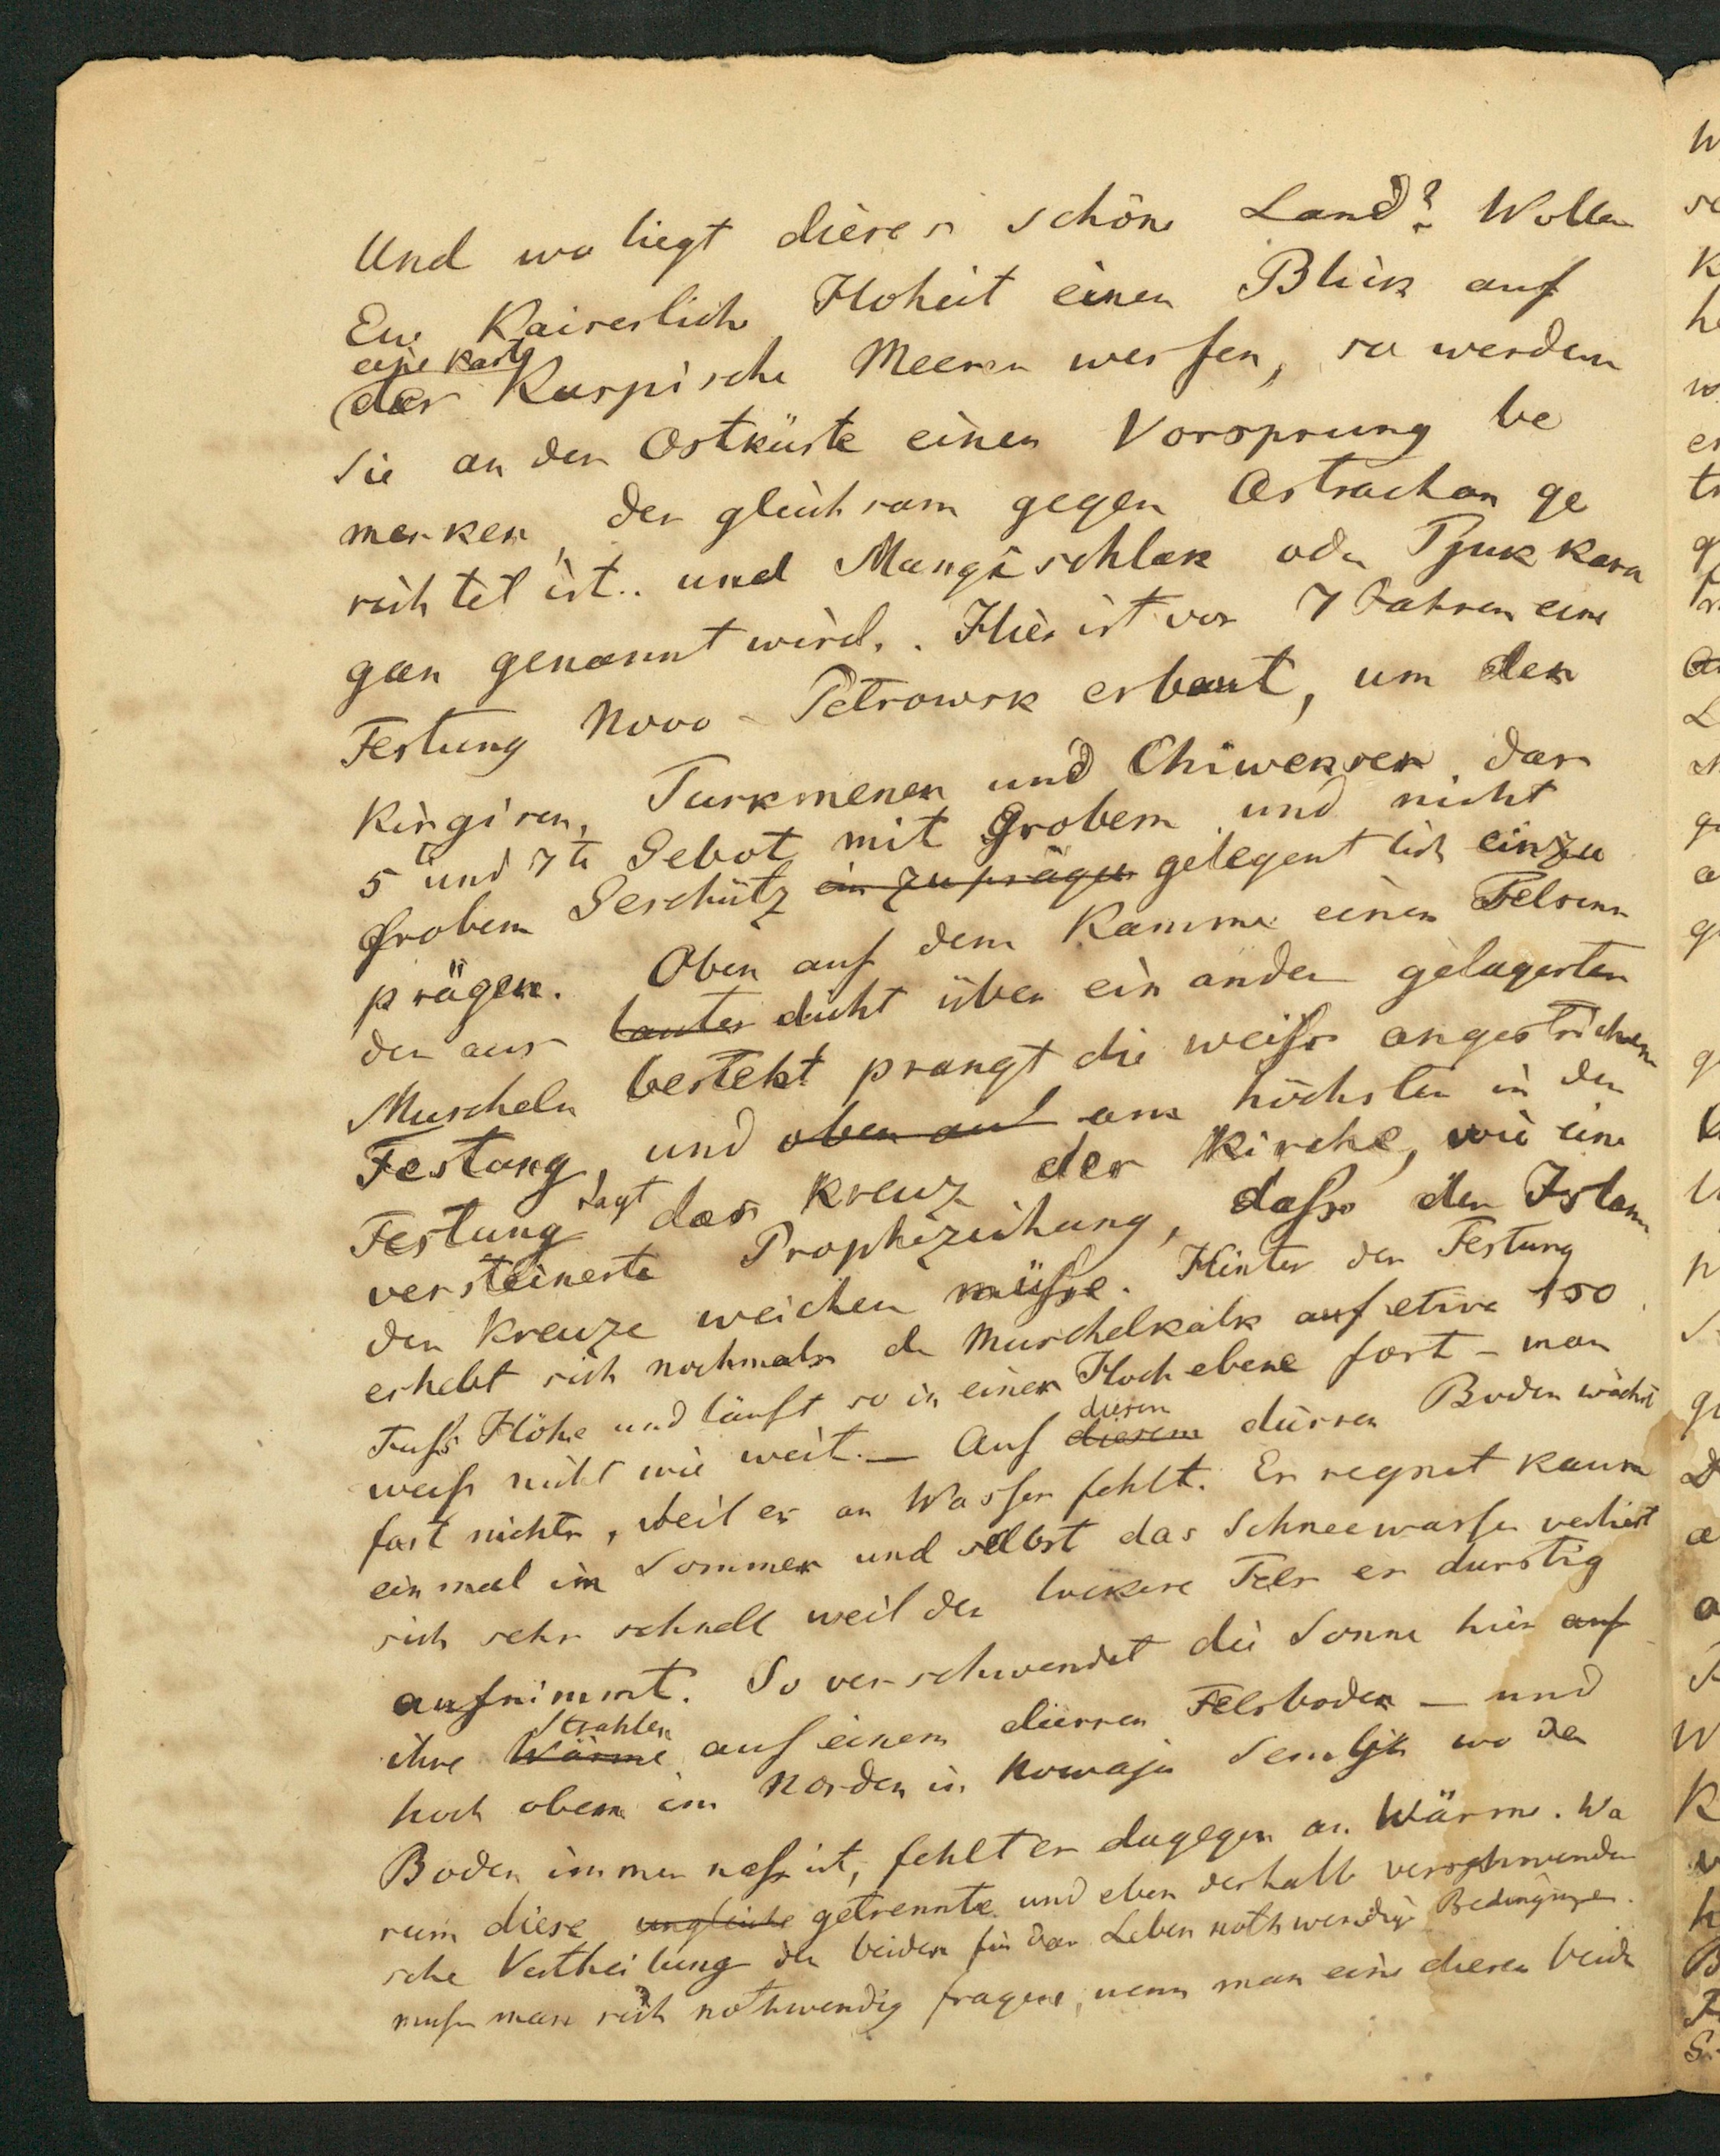 Und wo liegt dieses schöne Land? Wollen
Ew. Kaiserliche Hoheit einen Blick auf
eine Karte
des Kaspische Meeres werfen, so werden
Sie an der Ostküste einen Vorsprung be
merken, der gleichsam gegen Astrachan ge
richtet ist.. und Mangischlak oder Tjuk kara
gan genannt wird.. Hier ist vor 7 Jahren eine
Festung Novo-Petrowsk erbaut, um den
Kirgisen, Turkmenen und Chiwensen das
5 und 7te Gebot mit Grobem und nicht
Grobem Geschütz ein zuprägen gelegentlich einzu
prägen. Oben auf dem Kamme einen Felsens
der aus lauter dicht über ein ander gelagerten
Muscheln besteht prangt die weiss angestrichene
Festung, und oben auf am höchsten in der
Festung ragt das Kreuz der Kirche, wie eine
versteinerte Prophezeihung, dass der Islam
den Kreuze weichen müsse. Hinter der Festung
erhebt sich nochmals der Muschelkalk auf etwa 150
Fuss Höhe und läuft so in einer Hochebene fort - man
weiss nicht wie weit. — Auf diesem diesem dürren Boden wächst
fast nichts, weil es an Wasser fehlt. Es regnet kaum
ein mal im Sommer und selbst das Schneewasser verliert
sich sehr schnell weil der lockere Fels es durstig
aufnimmt. So verschwendet die Sonne hier auf
ihre Wärme Strahlen auf einem dürren Felsboden — und
hoch oben im Norden in Nowaja Semlja wo der
Boden immer nass ist, fehlt es dagegen an Wärme. Wa
rum diese ungleiche getrennte und eben deshalb verschwenderi
sche Vertheilung der beiden für das Leben nothwendige Bedingungen.
muss man sich nothwendig fragen, wenn man eine dieser beide